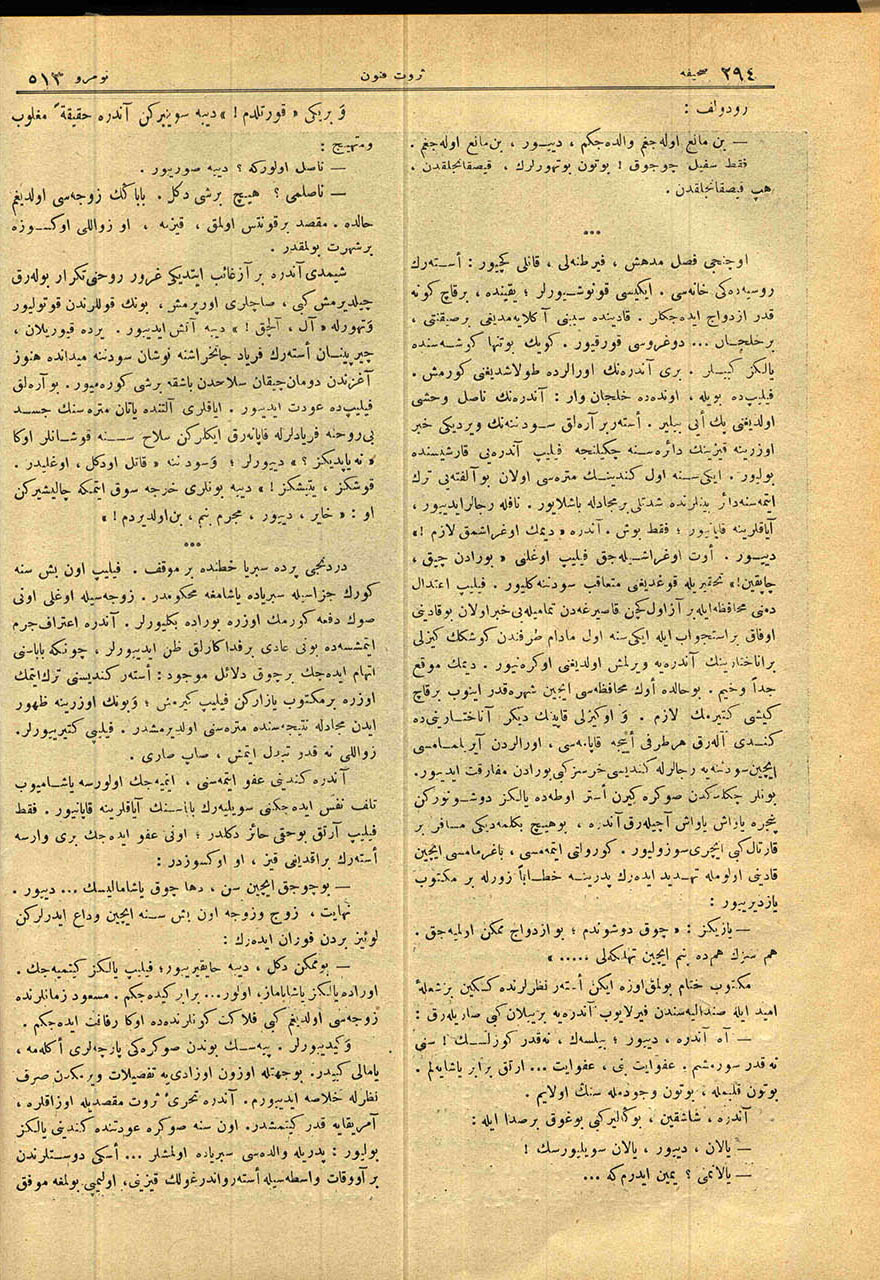 ٢٩٤ صحیفه
ثروت فنون
نومرو ٥١٣
رودولف :
— بن مانع اوله جغم والده جكم ، دییور ، بن مانع اوله جغم .
فقط سفیل چوجوق ! بوتون بوتهورلرك ، قیصقانجلقدن ،
هپ قیصقانجلقدن .
***
اوچنجی فصل مدهش ، فیرطنه لی ، قانلی كچیور : أسته رك
روسیه ده كی خانه سی . ایكیسی قونوشیورلر ؛ یقینده ، برقاچ كونه
قدر ازدواج ایده جكلر . قادینده سببی آكلایه مدیغی برصیقنتی ،
برخلجان ... دوغروسی قورقیور . كویك بوتنها كوشه سنده
یالكز كبیلر . بری آندره نك اورالرده طولاشدیغنی كورمش .
فیلیپ ده بویله ، اونده ده خلجان وار : آندره نك ناصل وحشی
اولدیغنی پك أیی بیلیر . أسته ر بر آره لق سودنته نك ویردیكی خبر
اوزرینه قیزینك دائره سنه چكلنجه فیلیپ آندره یی قارشیسنده
بولیور . ایكی سنه اول كندینك متره سی اولان بوآلفته یی ترك
ایتمه سنه دائر بینلرنده شدتلی بر مجادله باشلایور . نافله رجالر ایدییور ،
آیاقلرینه قاپانیور ؛ فقط بوش . آندره « دیمك اوغراشمق لازم !»
دییور . أوت اوغراشیله جق فیلیپ اوغلنی « بورادن چیق ،
چاپقین!» تحقیریله قوغدیغی متعاقب سودنته كلیور . فیلیپ اعتدال
دمنی محافظه ایله بر آز اول كچن قاصیرغه دن تمامیله بی خبر اولان بوقادینی
اوفاق بر استجواب ایله ایكی سنه اول مادام طرفندن كوشكك كیزلی
بر آناختارینك آندره یه ویرلمش اولدیغنی اوكره نیور . دیمك موقع
جداً وخیم . بوحالده أوك محافظه سی ایچین شهره قدر اینوب برقاچ
كیشی كتیرمك لازم . وَ اوكیزلی قاپینك دیكر آناختارینی ده
كندی آله رق هر طرفی أییجه قاپامه سی ، اورالردن آیریلمامسی
ایچین سودنته یه رجالرله كندیسی خرسز كبی بورادن مفارقت ایدییور.
بونلر چكلدكدن صوكره كیرن أستر اوطه ده یالكز دوشونوركن
پنجره یاواش یاواش آچیله رق آندره ، بوهیچ بكلمه دیكی مسافر بر
قارتال كبی ایچری سوزولیور . كورولتی ایتمه مسی ، باغرمامسی ایچین
قادینی اولومله تهدید ایده رك پدرینه خطاباً زورله بر مكتوب
یازدیریور :
— یازیكز : « چوق دوشوندم ؛ بو ازدواج ممكن اولمیه جق .
هم سزك هم ده بنم ایچین تهلكه لی ..... »
مكتوب ختام بولمق اوزه ایكن أسته ر نظرلرنده كسكین بر شعلهٔ
امید ایله صندالیه سندن فیرلایوب آندره یه بر ییلان كبی صاریله رق :
— آه آندره ، دییور ؛ بیلسه ك ، نه قدر كوزلسك ! سنی
نه قدر سورمشم . عفو ایت بنی ، عفو ایت ... آرتق برابر یاشایه لم .
بوتون قلبمله ، بوتون وجودمله سنك اولایم .
آندره ، شاشقین ، بوكالیر كبی بوغوق بر صدا ایله :
— یالان ، دییور ، یالان سویلیورسك !
— یالانمی ؟ یمین ایدرم كه ...
وَ بریكی « قورتلدم ! » دییه سوینیركن آندره حقیقةً مغلوب
ومتهیج :
— ناصل اولوركه ؟ دییه صوریور .
— ناصلمی ؟ هیچ برشی دكل . باباكك زوجه سی اولدیغم
حالده . مقصد بر قونتس اولمق ، قیزمه ، او زواللی اوكسوزه
برشهرت بولمقدر .
شیمدی آندره بر آز غائب ایتدیكی غرور روحنی تكرار بوله رق
چیلدیرمش كبی ، صاچلری اورپرمش ، بونك قوللرندن قوتولیور
وَتهورله « آل ، آلچق ! » دییه آتش ایدییور . یرده قیوریلان ،
چیرپینان أسته رك فریاد جانخراشنه قوشان سودنته میدانده هنوز
آغزندن دومان چیقان سلاحدن باشقه برشی كوره میور . بو آره لق
فیلیپ ده عودت ایدییور . ایاقلری آلتنده یاتان متره سنك جسد
بی روحنه فریادلرله قاپانه رق ایكلركن سلاح سسنه قوشانلر اوكا
« نه یاپدیكز ؟ » دییورلر ؛ وَسودنته « قاتل اودكل ، اوغلیدر .
قوشكز ، یتیشكز ! » دییه بونلری خرجه سوق ایتمكه چالیشیركن
او : « خایر ، دییور ، مجرم بنم ، بن اولدیردم ! »
***
دردنجی پرده سبریا خطنده بر موقف . فیلیپ اون بش سنه
كورك جزاسیله سبریاده یاشامغه محكومدر . زوجه سیله اوغلی اونی
صوك دفعه كورمك اوزره بوراده بكلیورلر . آندره اعتراف جرم
ایتمشسه ده بونی عادی بر فداكارلق ظن ایدییورلر ، چونكه باباسنی
اتهام ایده جك بر چوق دلائل موجود : أسته ر كندیسنی ترك ایتمك
اوزره بر مكتوب یازاركن فیلیپ كیرمش ؛ وَبونك اوزرینه ظهور
ایدن مجادله نتیجه سنده متره سنی اولدیرمشدر . فیلیپی كتیرییورلر.
زواللی نه قدر تبدل ایتمش ، صاپ صاری .
آندره كندینی عفو ایتمه سنی ، ایتمیه جك اولورسه یاشامیوب
تلف نفس ایده جكنی سویلیه رك باباسنك آیاقلرینه قاپانیور . فقط
فیلیپ آرتق بوحقی حائز دكلدر ؛ اونی عفو ایده جك بری وارسه
أسته رك براقدیغی قیز ، او اوكسوزدر :
— بوچوجق ایچین سن ، دها چوق یاشامالیسك ... دییور .
نهایت ، زوج وزوجه اون بش سنه ایچین وداع ایدرلركن
لوئیز بردن فوران ایده رك :
— بوممكن دكل ، دییه حایقیرییور؛ فیلیپ یالكز كیتمیه جك .
اوراده یالكز یاشایاماز، اولور... برابر كیده جكم . مسعود زمانلرنده
زوجه سی اولدیغم كبی فلاكت كونلرنده ده اوكا رفاقت ایده جكم .
وَكیدییورلر . پیه سك بوندن صوكره كی پارچه لری أكله مه ،
یامالی كبیدر. بوجهتله اوزون اوزادی یه تفصیلات ویرمكدن صرف
نظرله خلاصه ایدییورم . آندره تحریٔ ثروت مقصدیله اوزاقلره ،
آمریقایه قدر كیتمشدر. اون سنه صوكره عودتنده كندینی یالكز
بولیور : پدریله والده سی سبریاده اولمشلر ... أسكی دوستلرندن
بر آووقات واسطه سیله أسته ر واندرغولك قیزینی، اولیمپی بولمغه موفق